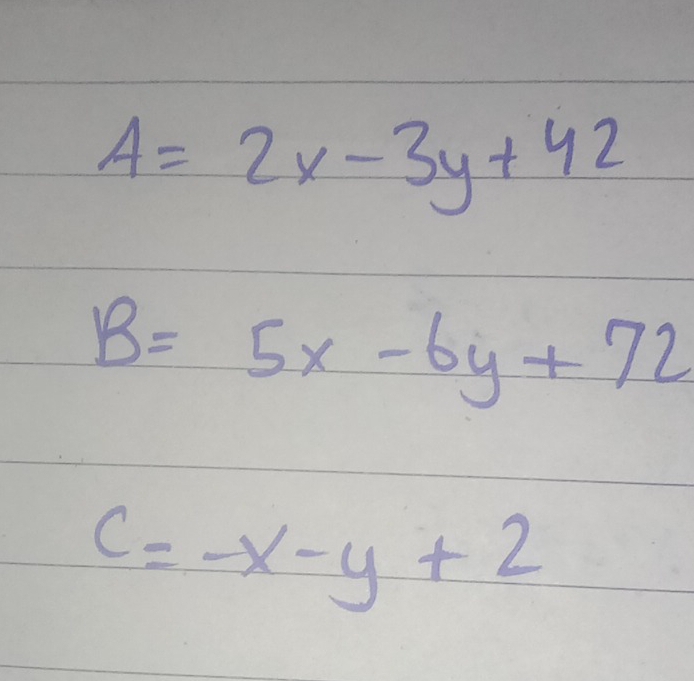 A= 2x-3y+42
B= 5x-6y+72
C=-x-y+2